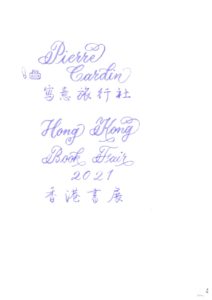 Pierre
Cardin
寫意旅行社
Hong Kong
Book Fair
2021
香港書展